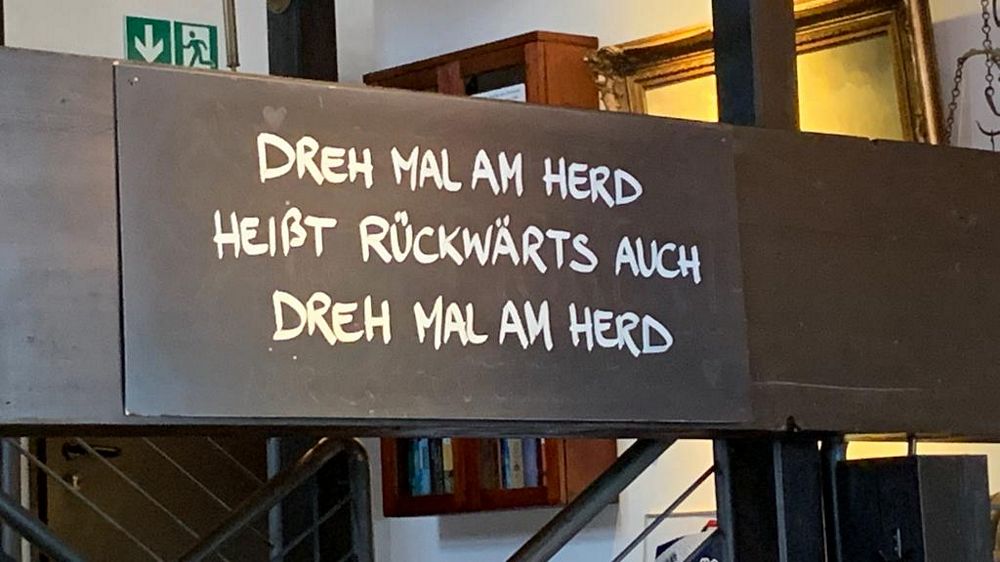 DREH MAL AM HERD
HEIßT RÜCKWÄRTS AUCH
DREH MAL AM HERD